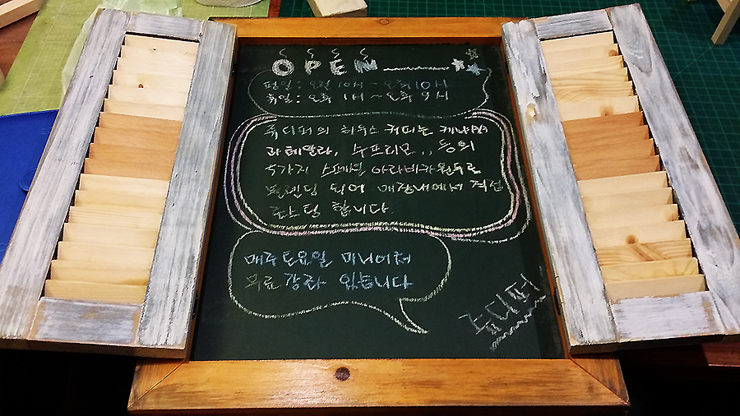 OPEN
평일 : 오전 10시 ~ 오후 10시
휴일 : 오후 1시 ~ 오후 9시
쥬디퍼의 하우스 커피는 케냐AA
과테말라, 수프리모.. 등의
5가지 스페셜 아라비카 원두로
블렌딩 되어 매장내에서 직접
로스팅 합니다
매주 토요일 미니어처
무료 강좌 있습니다
쥬디퍼